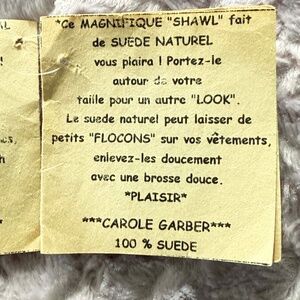 AL
*Ce MAGNIFIQUE "SHAWL" fait
de SUEDE NATUREL
vous plaira ! Portez-le
autour de votre
taille pour un autre "LOOK".
Le suede naturel peut laisser de
petits "FLOCONS" sur vos vêtements,
enlevez-les doucement
avec une brosse douce.
*PLAISIR*
***CAROLE GARBER***
100 % SUEDE